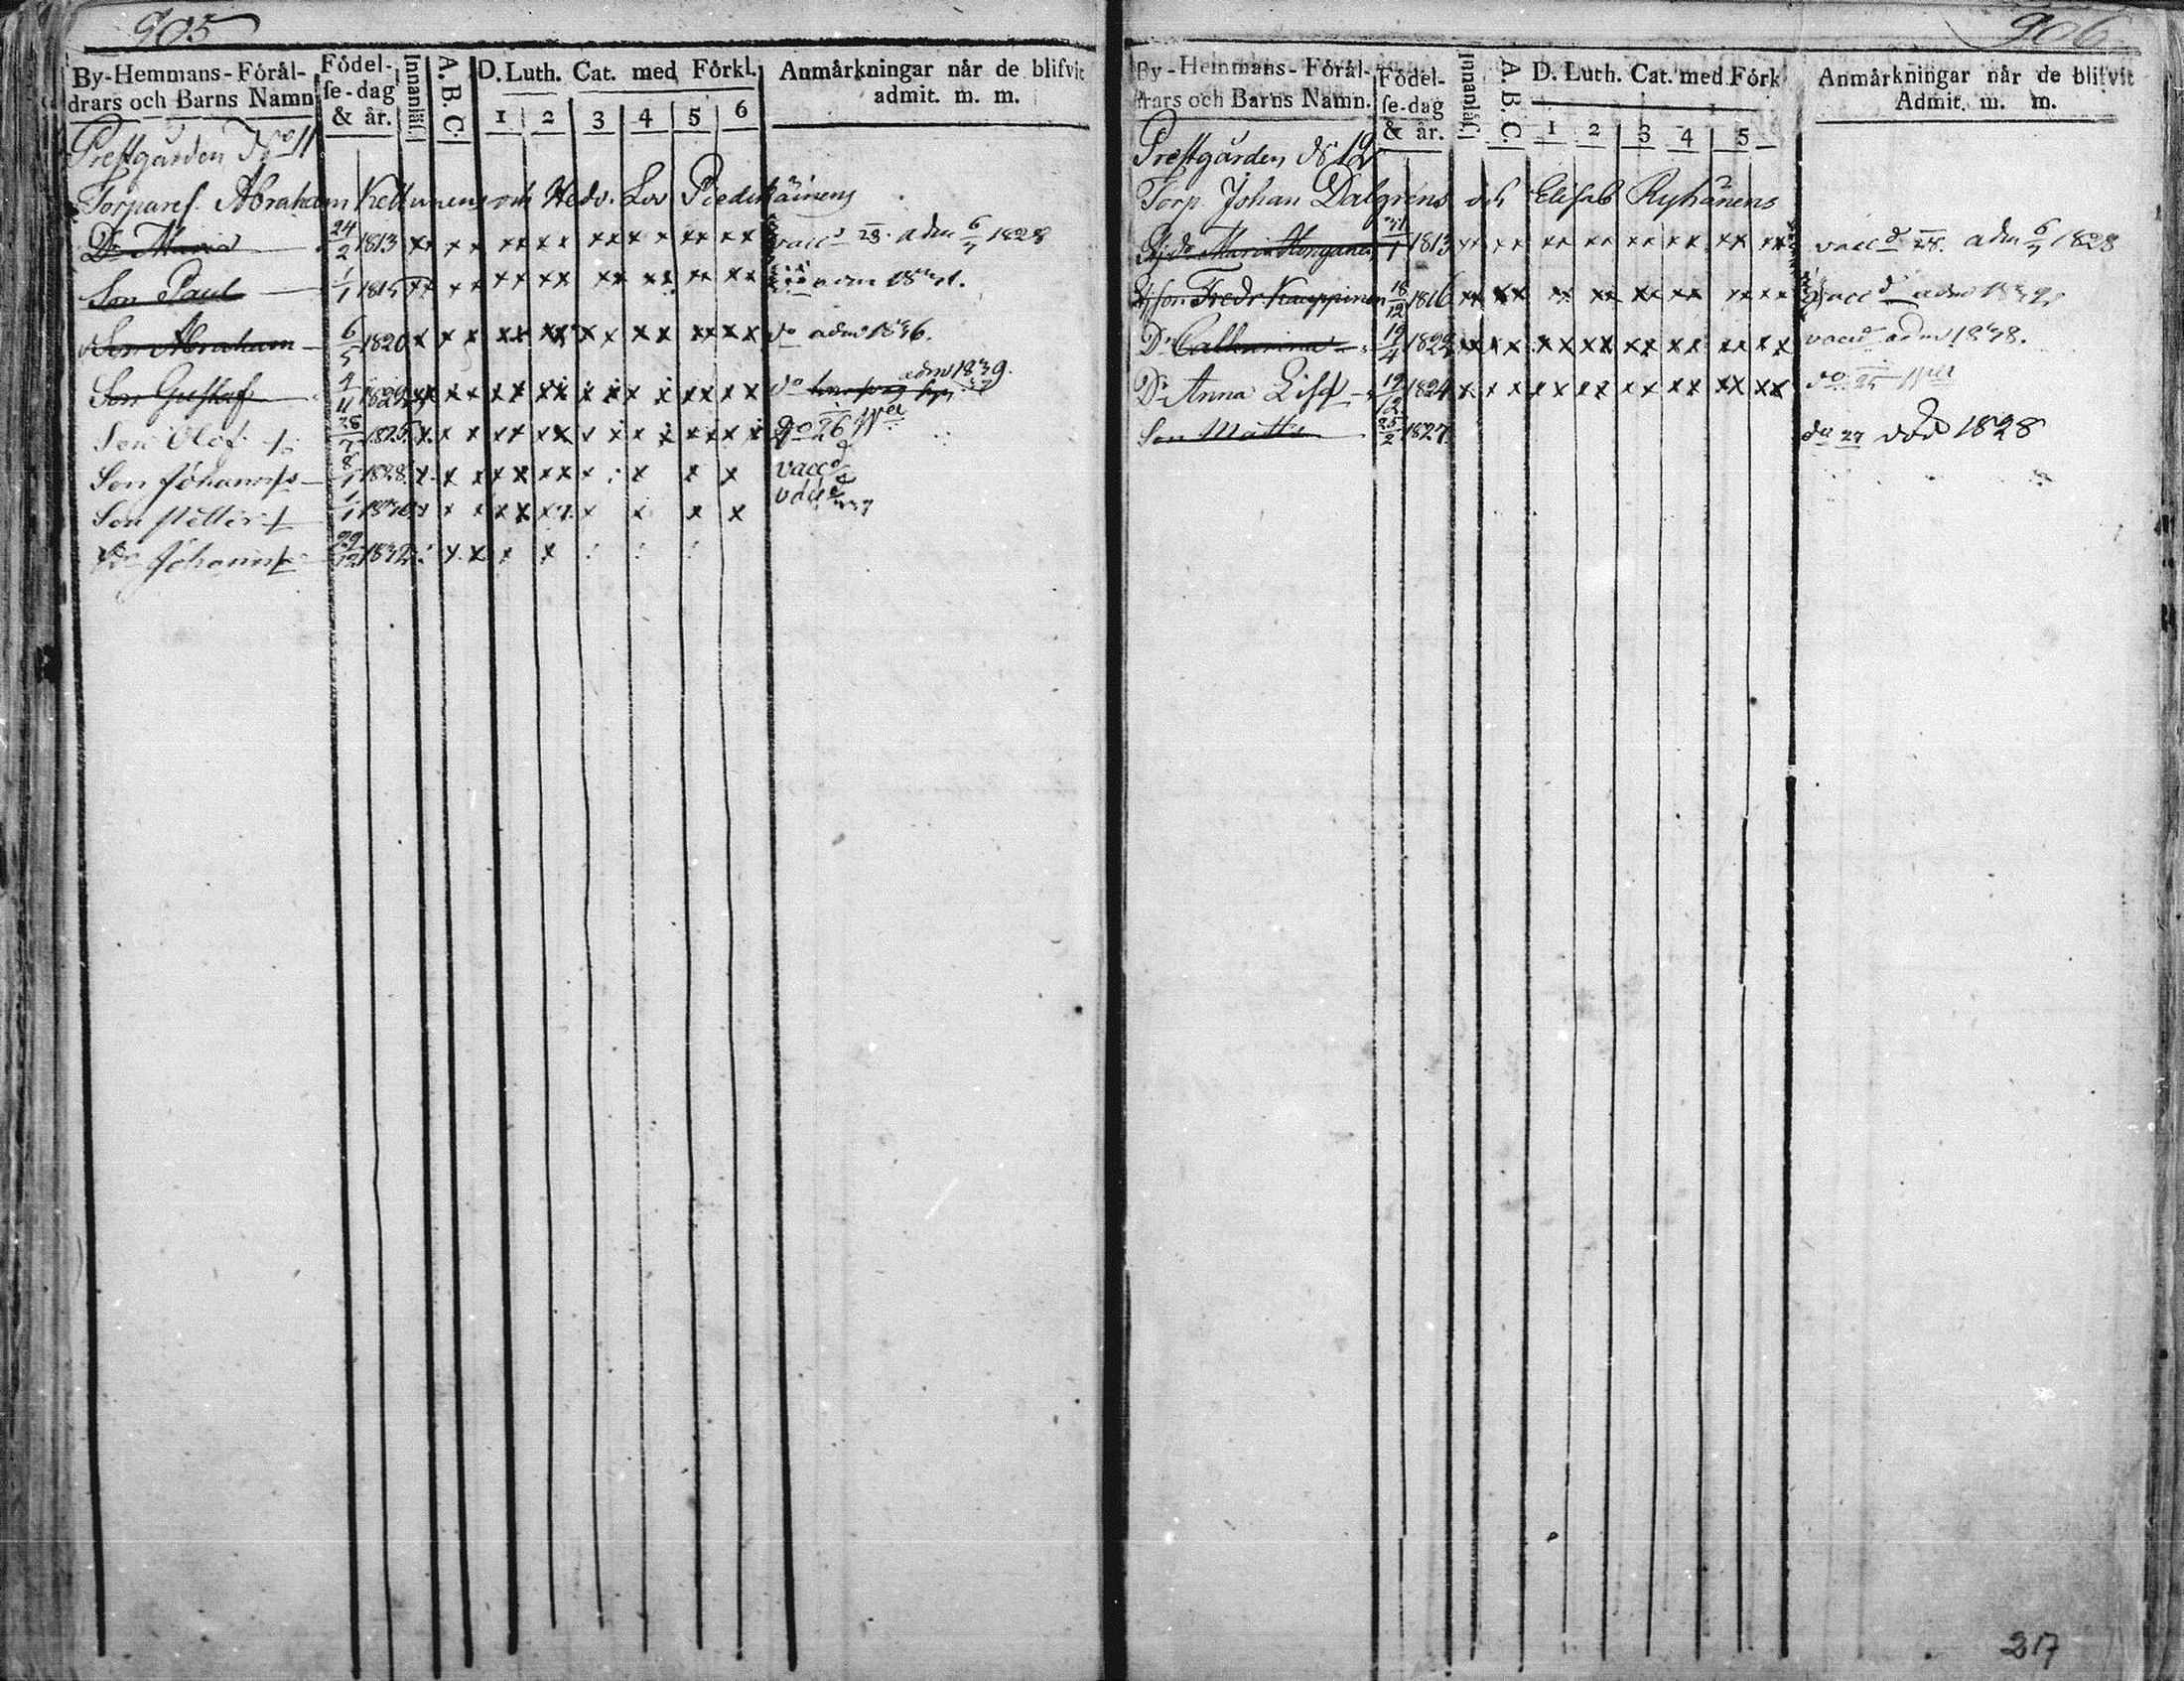 905
By-Hemmans-Förål-
drars och Barns Namn
Födel-
se-dag
& år.
Innanläs.
A. B. C.
D. Luth. Cat. med Förkl.
1 2 3 4 5 6
Anmårkningar når de blifvit
admit. m. m.
Prestgården No 11
Torpares Abraham Kettunens och Hedv. Lov
Dr Maria 24/2 1813 xx xx xx xx xx xx xx xx vacc adm 6/7 1828
Son Paul 1/1 1815 xx xx xx xx xx xx xx xx adm 1831.
Son Abraham 6/5 1820 x x x xx xx xx xx xx xx do adm 1836.
Son Gustaf 1822 xx xx xx xx xx xx xx xx do adm 1839.
Son Olof 28/7 1825 x x x xx xx x x x x xx x x
Son Johannes 8/1 1828 x x x xx xx x x x x vacc
Son Petter 1/1 x x x xx x x x x x
Johannes 29/12 1832 x x x x
906
By-Hemmans-Förål-
drars och Barns Namn.
Födel-
se-dag
& år.
Innanläs.
A. B. C.
D. Luth. Cat. med Förk
1 2 3 4 5
Anmårkningar når de blifvit
Admit. m. m.
Prestgården No 12
Torp. Johan Dalgrens och Elisab Ryhänens
Maria 1813 xx xx xx xx xx xx xx xx vacc adm 6/7 1828
son Fredr Kauppinen 18/12 1816 xx xx xx xx xx xx xx xx vacc adm
Dr Catharina 19/4 1822 xx xx xx xx xx xx xx xx vacc adm 1838.
Dr Anna Lisa 19/12 1824 x x x xx xx xx xx xx xx do 25
Son Matts 25/2 1827 do 27 död 1828
217